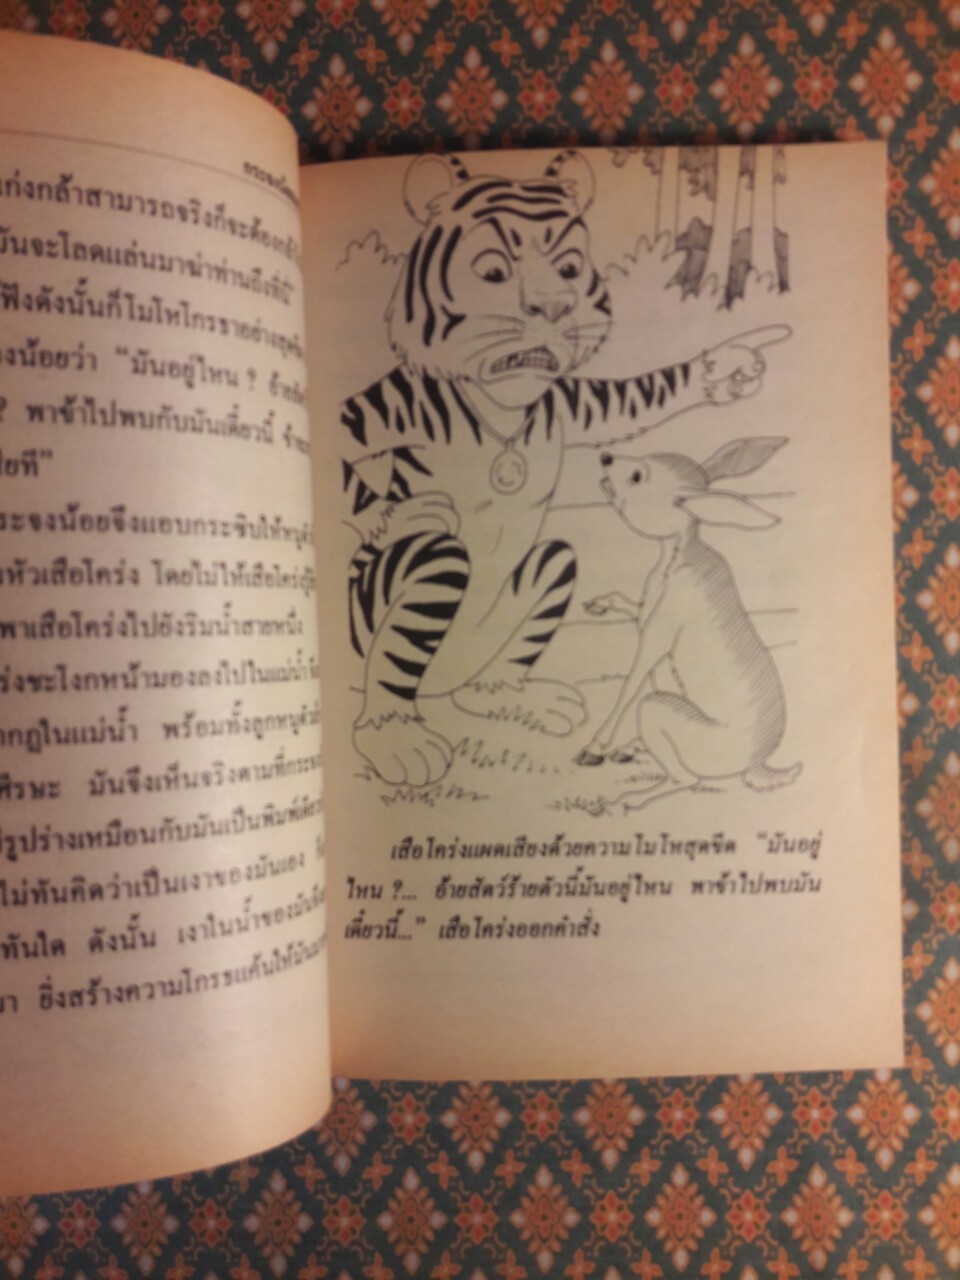 เก่งกล้าสามารถจริงก็จะต้อง
มันจะโลดแล่นมาฆ่าท่านถึงที่นี่”
ฟังดังนั้นก็โมโหโกรธาอย่าง
น้อยว่า “มันอยู่ไหน ? อ้าย
? พาข้าไปพบกับมันเดี๋ยวนี้
”
กระจงน้อยจึงแอบกระซิบให้หนู
หัวเสือโคร่ง โดยไม่ให้เสือโคร่ง
พาเสือโคร่งไปยังริมน้ำสายหนึ่ง
ชะโงกหน้ามองลงไปในแม่น้ำ
ในแม่น้ำ พร้อมทั้งลูกหนู
ศีรษะ มันจึงเห็นจริงตามที่
รูปร่างเหมือนกับมันเป็นพิมพ์เดียว
ไม่ทันคิดว่าเป็นเงาของมันเอง
ทันใด ดังนั้น เงาในน้ำของมัน
ยิ่งสร้างความโกรธแค้นให้มัน
เสือโคร่งแผดเสียงด้วยความโมโหสุดขีด “มันอยู่
ไหน ?... อ้ายสัตว์ร้ายตัวนี้มันอยู่ไหน พาข้าไปพบมัน
เดี๋ยวนี้...” เสือโคร่งออกคำสั่ง